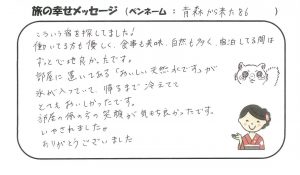 旅の幸せメッセージ（ペンネーム：青森から来た86　）
こういう宿を探してました!
働いてる方も優しく、食事も美味、自然も多く、宿泊してる間は
ずっとでは良かったです。
部屋に置いてある「おいしい天然水です」が
氷が入っていて、帰るまで冷えてて
とてもおいしかったです。
部屋の係の方の笑顔が気もち良かったです。
いやされました。
ありがとうございました